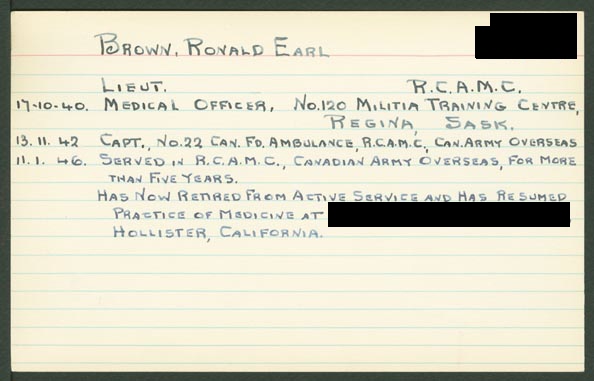 BROWN, RONALD EARL
LIEUT. R.C.A.M.C.
17-10-40. MEDICAL OFFICER, NO.120 MILITIA TRAINING CENTRE,
REGINA, SASK.
13.11.42 CAPT., NO.22 CAN. FD. AMBULANCE, R.C.A.M.C., CAN. ARMY OVERSEAS
11.1.46. SERVED IN R.C.A.M.C., CANADIAN ARMY OVERSEAS, FOR MORE
THAN FIVE YEARS.
HAS NOW RETIRED FROM ACTIVE SERVICE AND HAS RESUMED
PRACTICE OF MEDICINE AT
HOLLISTER, CALIFORNIA.